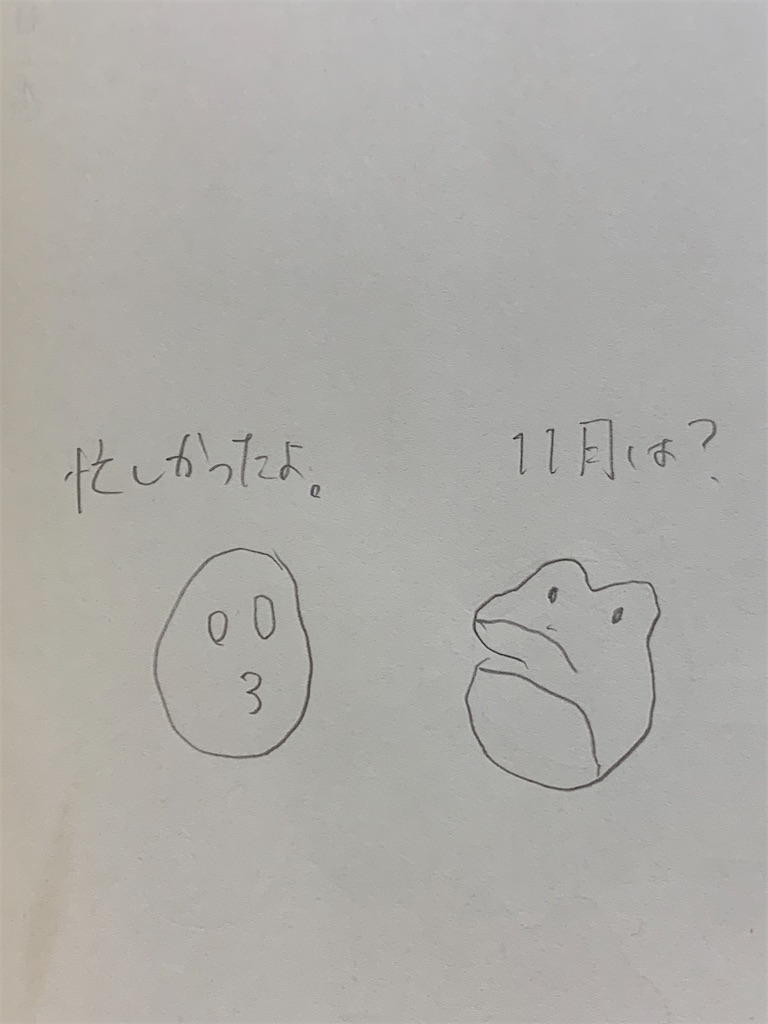 忙しかったよ。
11月は？